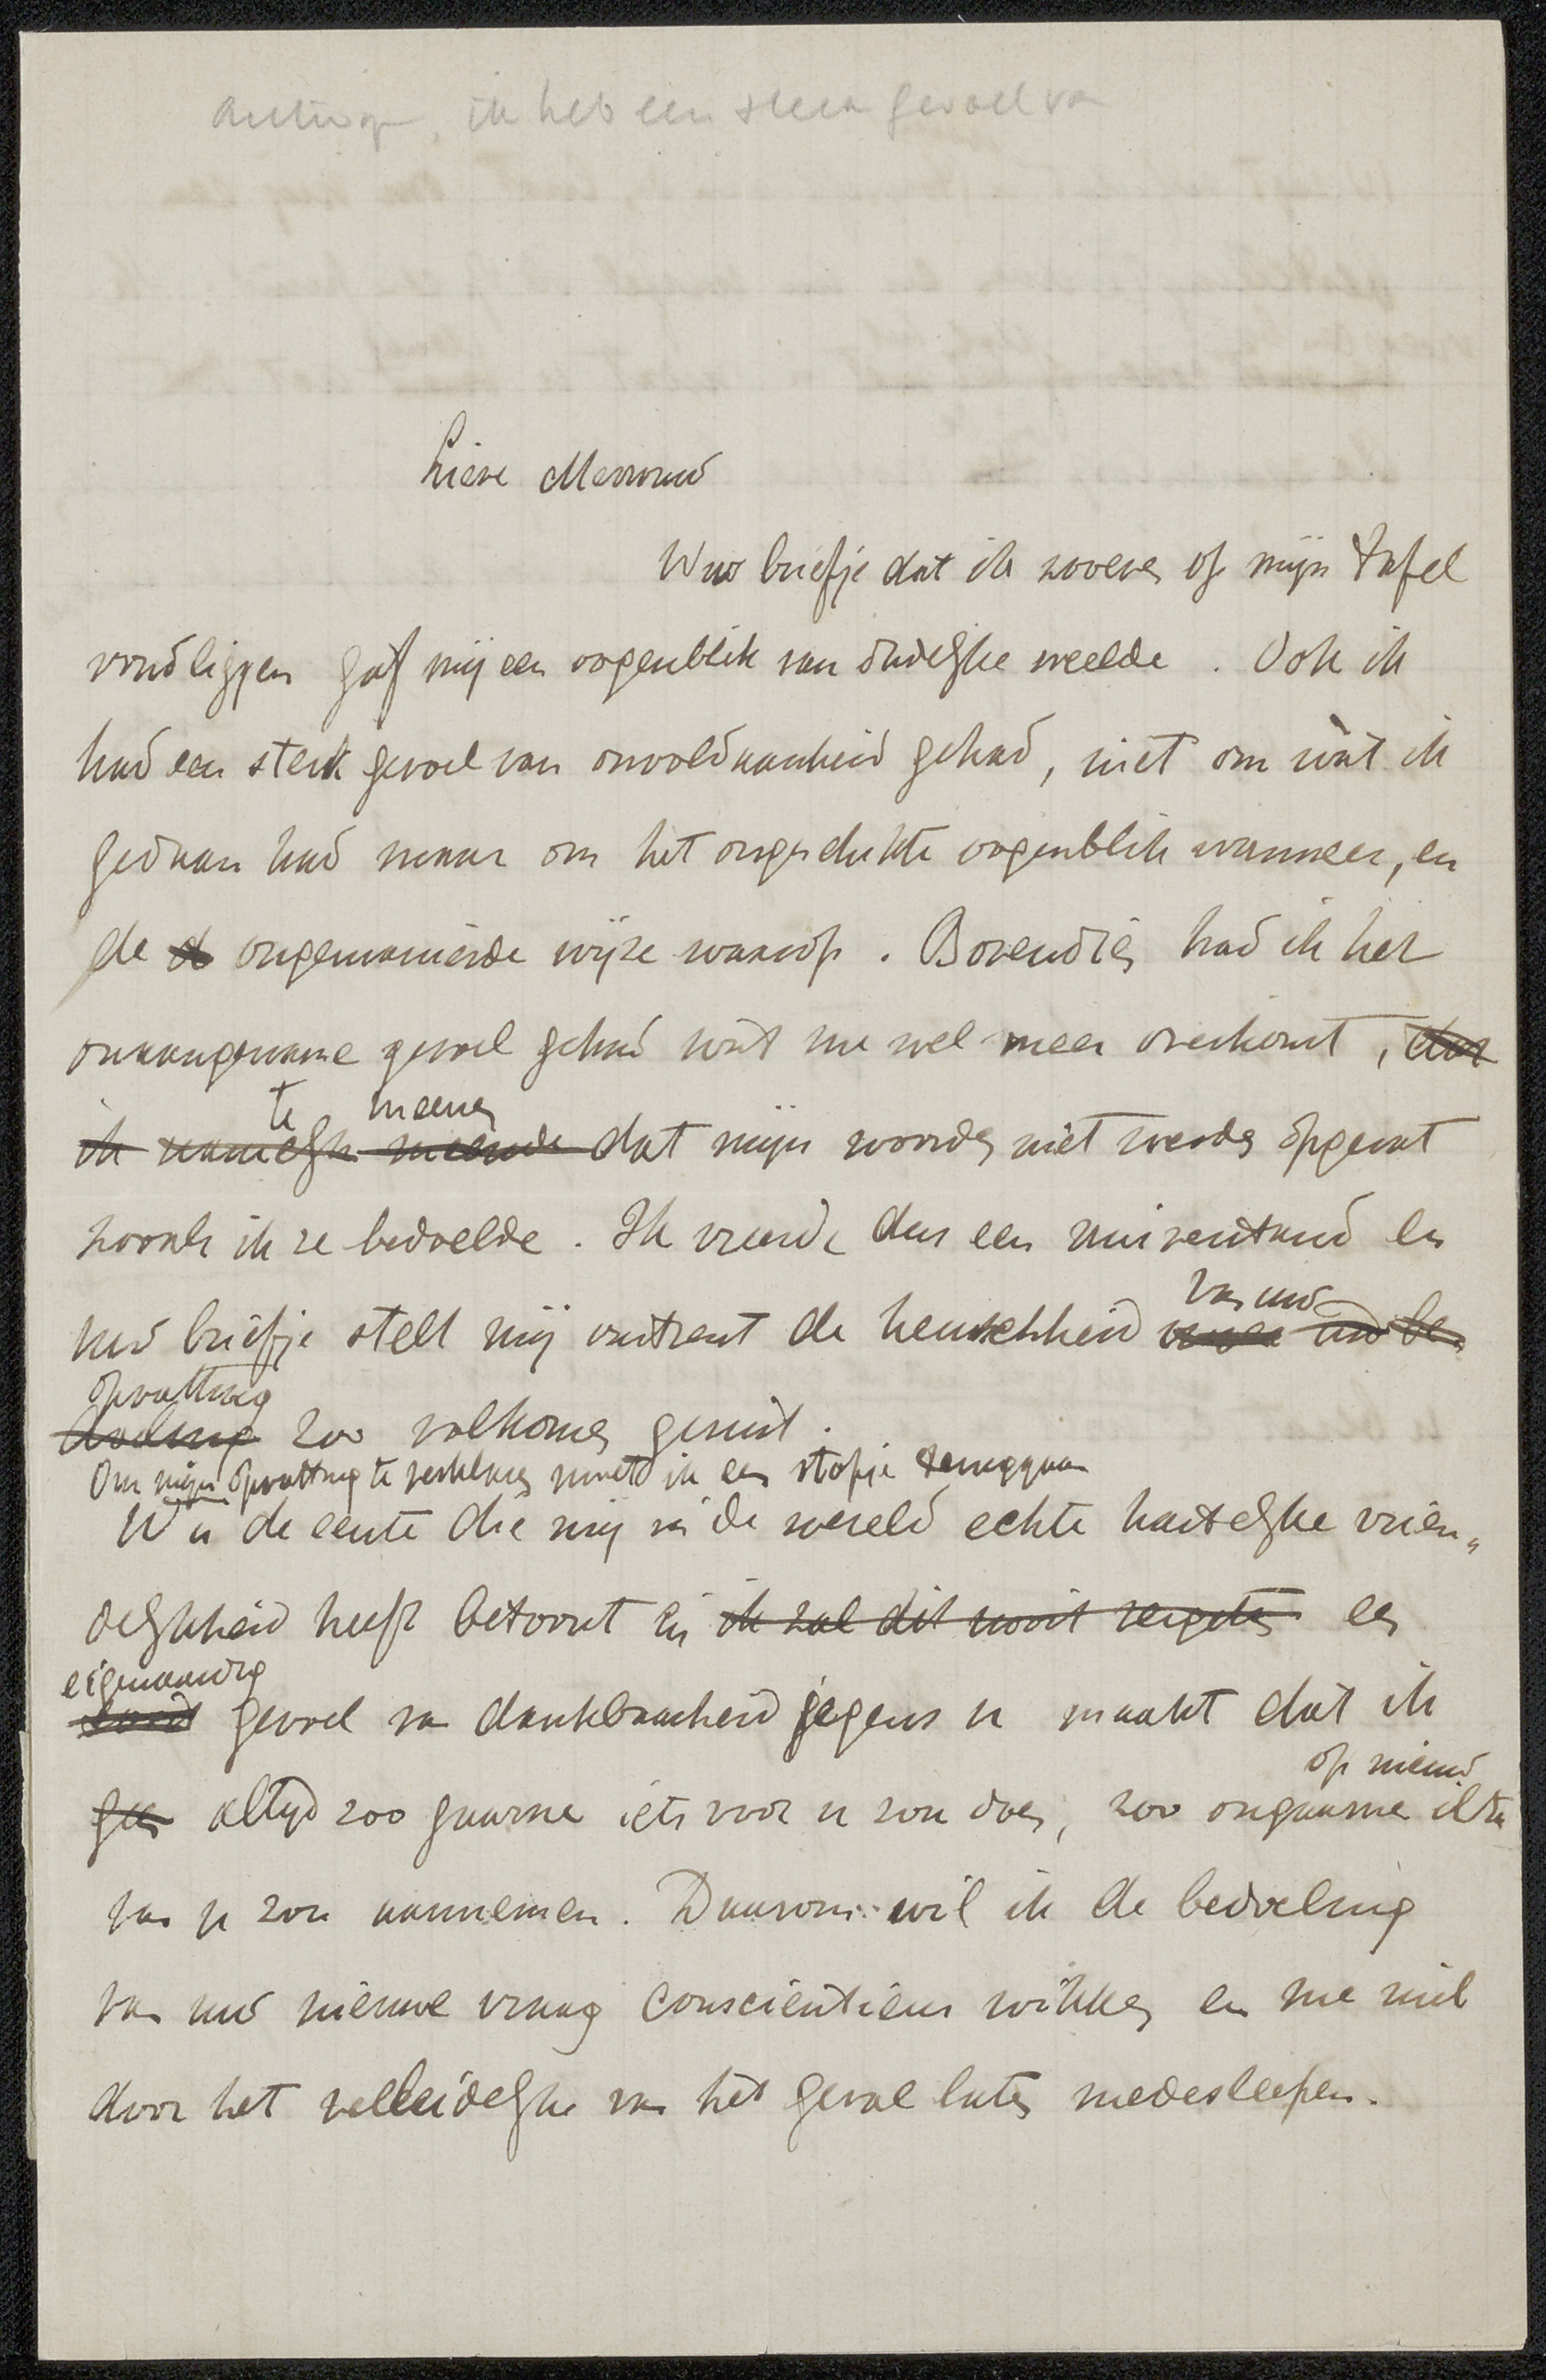 ik heb een sterk gevoel van
Lieve Mevrouw
Uw briefje dat ik zooeven op mijn tafel
vond liggen gaf mij een oogenblik van innige weelde. Ook ik
had een sterk gevoel van onvoldaanheid gehad, niet om wàt ik
gedaan had maar om het ongeschikte oogenblik wanneer, en
de d ongemanierde wijze waarop. Bovendien had ik het
onaangename gevoel gehad wat me wel meer overkomt, dat
te meenen
ik namelijk meende dat mijn woorden niet werden opgevat
zooals ik ze bedoelde. Ik vreesde dus een misverstand en
van uw
uw briefje stelt mij omtrent de heuschheid uwer uw be
opvatting
doeling zoo volkomen gerust.
Om mijn opvatting te verklaren moet ik een stapje teruggaan
U is de eerste die mij in de wereld echte hartelijke vrien„
delijkheid heeft betoont en ik zal dit nooit vergeten een
eigenaardig
soort gevoel van dankbaarheid jegens u maakt dat ik
op nieuw
gee altijd zoo gaarne iets voor u zou doen, zoo ongaarne iets
van u zou aannemen. Daarom wil ik de bedoeling
van uw nieuwe vraag conscientieus wikken en me niet
door het verleidelijke van het geval laten medesleepen.